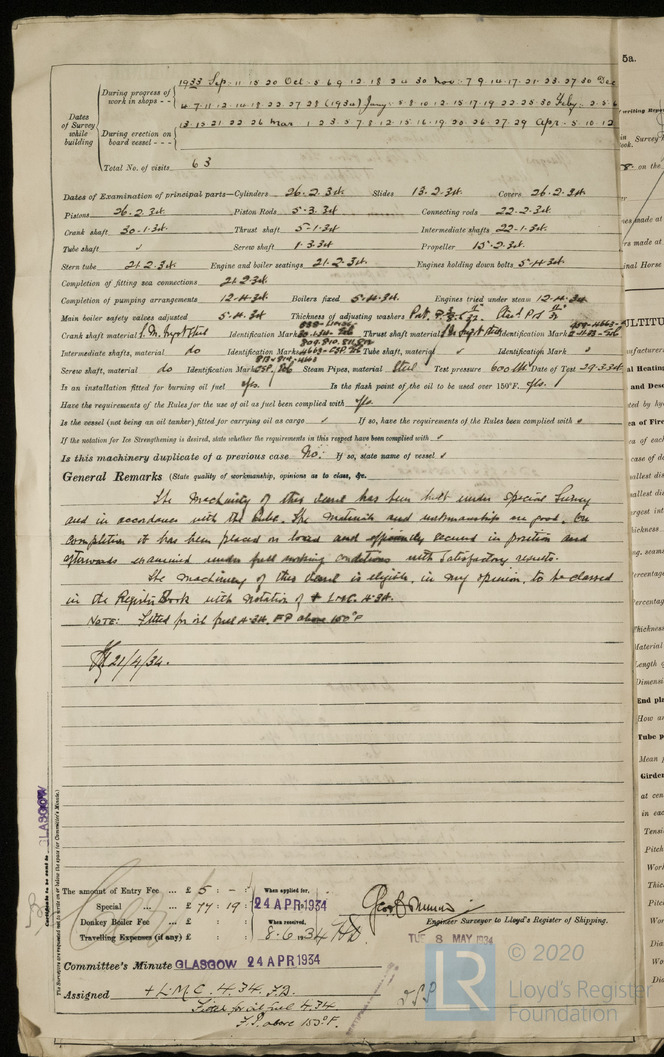 5a.
1933 Sep. 11. 15. 20 Oct. 5 6 9. 12. 18. 24. 30 Nov. 7. 9. 14. 17. 21. 23. 27. 30 Dec
During progress of work in shops - -
4. 7. 11. 12. 14. 18. 22. 27. 28 (1934) Jany. 5. 8. 10. 12. 15. 17. 19. 22. 25. 30 Feby. 2. 5. 6
Dates of Survey while building
During erection on board vessel - - -
13. 15. 21. 22. 26 Mar 1. 2 3. 5. 7. 8. 12. 15. 16. 19. 20. 26. 27. 29 Apr. 5. 10. 12
Total No. of visits 63
Dates of Examination of principal parts—Cylinders 26.2.34. Slides 13.2.34. Covers 26.2.34
Pistons 26.2.34. Piston Rods 5.3.34. Connecting rods 22.2.34.
Crank shaft 30.1.34. Thrust shaft 5.1.34. Intermediate shafts 22.1.34.
Tube shaft ✓ Screw shaft 1.3.34 Propeller 15.2.34.
Stern tube 21.2.34. Engine and boiler seatings 21.2.34. Engines holding down bolts 5.4.34
Completion of fitting sea connections 21.2.34.
Completion of pumping arrangements 12.4.34 Boilers fixed 5.4.34. Engines tried under steam 12.4.34
Main boiler safety valves adjusted 5.4.34 Thickness of adjusting washers
Crank shaft material Identification Mark Thrust shaft material Identification Mark
Intermediate shafts, material do Identification Marks Tube shaft, material ✓ Identification Mark ✓
Screw shaft, material do Identification Mark Steam Pipes, material Steel Test pressure 600 lb Date of Test 29.3.34
Is an installation fitted for burning oil fuel yes. Is the flash point of the oil to be used over 150°F. yes.
Have the requirements of the Rules for the use of oil as fuel been complied with yes.
Is the vessel (not being an oil tanker) fitted for carrying oil as cargo ✓ If so, have the requirements of the Rules been complied with
If the notation for Ice Strengthening is desired, state whether the requirements in this respect have been complied with ✓
Is this machinery duplicate of a previous case No. If so, state name of vessel ✓
General Remarks (State quality of workmanship, opinions as to class, &c.
The machinery of this vessel has been built under Special Survey
and in accordance with the Rules. The materials and workmanship are good. On
completion it has been placed on board and efficiently secured in position and
afterwards examined under full working conditions with satisfactory results.
The machinery of this vessel is eligible, in my opinion, to be classed
in the Register Book with notation of + LMC. 4.34.
NOTE: Fitted for oil fuel 4.34. F.P. above 150°F
21/4/34.
GLASGOW
The amount of Entry Fee ... £ 5 : - :
Special ... £ 77 : 19 :
Donkey Boiler Fee ... £ : :
Travelling Expenses (if any) £ : :
When applied for,
24 APR 1934
When received,
8.6.34
Engineer Surveyor to Lloyd's Register of Shipping.
TUE 8 MAY 1934
Committee's Minute GLASGOW 24 APR 1934
Assigned + L.M.C. 4.34. F.D.
Fitted for oil fuel 4.34
F.P. above 150°F.
LR
© 2020
Lloyd's Register
Foundation